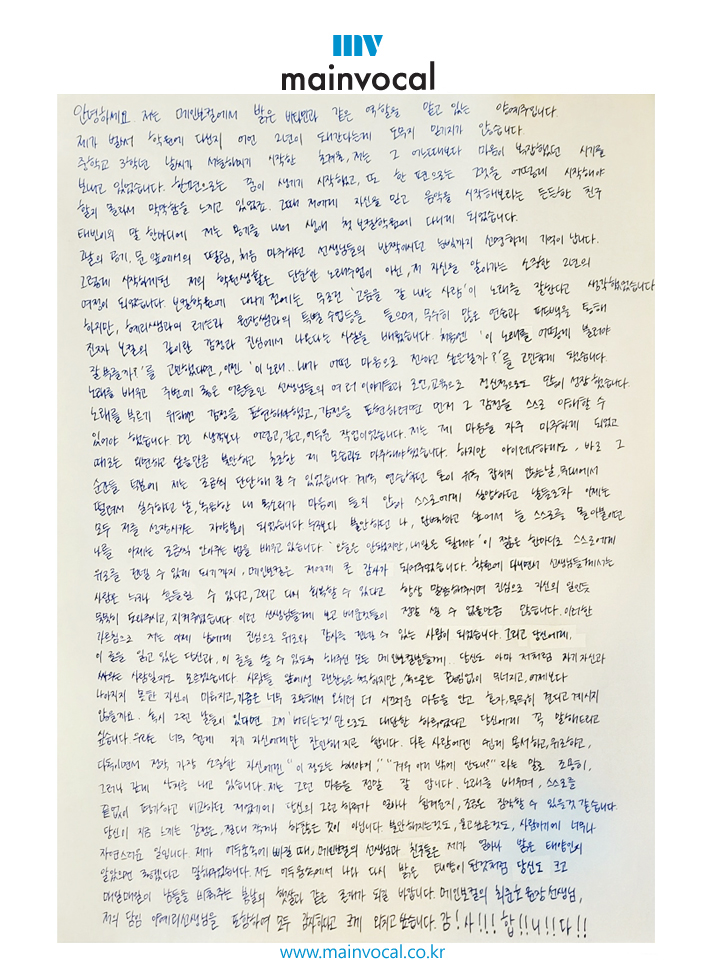 mv
mainvocal
안녕하세요. 저는 메인보컬에서 밝은 비타민과 같은 역할을 맡고 있는 양예주입니다.
제가 벌써 학원에 다닌지 어언 2년이 되간다는게 도무지 믿기지가 않습니다.
중학교 3학년 날씨가 서늘해지기 시작한 초겨울, 저는 그 어느때보다 마음이 복잡했던 시기를
보내고 있었습니다. 한편으로는 꿈이 생기기 시작했고, 또 한 편으로는 그것을 어떻게 시작해야
할지 몰라서 막막함을 느끼고 있었죠. 그때 저에게 자신을 믿고 음악을 시작해보라는 든든한 친구
태빈이의 말 한마디에 저는 용기를 내어 생애 첫 보컬학원에 다니게 되었습니다.
그날의 공기, 문 앞에서의 떨림, 처음 마주하던 선생님들의 반짝이던 눈빛까지 선명하게 기억이 납니다.
그렇게 시작하게된 저의 학원생활은 단순한 노래수업이 아닌, 제 자신을 알아가는 소중한 2년의
여정이 되었습니다. 보컬학원에 다니기 전에는 무조건 '고음을 잘 내는 사람'이 노래를 잘한다고 생각했었습니다
하지만, 예리쌤과의 레슨과 원장쌤과의 특별수업들을 들으며, 무수히 많은 연습과 피드백을 통해
진짜 보컬의 깊이란 감정과 진심에서 나온다는 사실을 배웠습니다. 처음엔 '이 노래를 어떻게 불러야
잘 부를까?'를 고민했다면, 이젠 '이 노래.. 내가 어떤 마음으로 전하고 싶은걸까?'를 고민하게 됐습니다.
노래를 배우고 주변에 좋은 어른들인 선생님들의 여러 이야기들과 조언, 교육으로 정신적으로도 많이 성장했습니다.
노래를 부르기 위해선 감정을 표현해야했고, 감정을 표현하려면 먼저 그 감정을 스스로 이해할 수
있어야 했습니다. 그건 생각보다 어렵고, 깊고, 어두운 작업이었습니다. 저는 제 마음을 자주 마주하게 되었고
때로는 외면하고 싶을만큼 불안하고 초라한 제 모습과도 마주해야했습니다. 하지만 아이러니하게도, 바로 그
순간들 덕분에 저는 조금씩 단단해질 수 있었습니다. 계속 연습하던 음이 유독 잡히지 않는날, 무대에서
떨려서 실수하던 날, 녹음한 내 목소리가 마음에 들지 않아 스스로에게 실망하던 날들조차 이제는
모두 저를 성장시키는 자양분이 되었습니다. 누구보다 불안하던 나, 완벽하고 싶어서 늘 스스로를 몰아붙이던
나를 이제는 조금씩 안아주는 법을 배우고 있습니다. '오늘은 안됐지만, 내일은 될거야' 이 짧은 한마디로 스스로에게
위로를 전할 수 있게 되기까지, 메인보컬은 저에게 큰 감사가 되어주었습니다. 학원에 다니면서 선생님들께서는
사람은 누구나 흔들릴 수 있다고, 그리고 다시 회복할 수 있다고 항상 말씀해주시며 진심으로 자신의 일인듯
묵묵히 도와주시고, 지켜주었습니다. 이런 선생님들께 보고 배운것들이 정말 셀 수 없을만큼 많습니다. 이러한
가르침으로 저는 이제 남에게 진심으로 위로와 감사를 전할 수 있는 사람이 되었습니다. 그리고 당신에게,
이 글을 읽고 있는 당신과, 이 글을 쓸 수 있도록 해주신 모든 메인보컬분들께.. 당신도 아마 저처럼 자기 자신과
싸우는 사람일지도 모르겠습니다. 사람들 앞에선 괜찮은척 하지만, 속으로는 끊임없이 무너지고, 어제보다
나아지지 못한 자신이 미워지고, 가끔은 너무 조용해서 오히려 더 시끄러운 마음을 안고 혼자, 묵묵히 견디고 계시지
않을까요. 혹시 그런 날들이 있다면 그저 '버티는것'만으로도 대단한 하루였다고 당신에게 꼭 말해드리고
싶습니다. 우리는 너무 쉽게 자기 자신에게만 잔인해지곤 합니다. 다른 사람에겐 쉽게 용서하고, 위로하고,
다독이면서 정작 가장 소중한 자신에겐 "이 정도는 해야해," "겨우 이거 밖에 안돼?" 라는 말로 조용히,
그러나 깊게 상처를 내고 있습니다. 저는 그런 마음을 정말 잘 압니다. 노래를 배우며, 스스로를
끝없이 평가하고 비교하던 저였기에 당신의 그런 하루가 얼마나 힘겨운지, 조금은 짐작할 수 있을것 같습니다.
당신이 지금 느끼는 감정은, 절대 작거나 하찮은 것이 아닙니다. 불안해지는것도, 울고싶은것도, 사람이기에 너무나
자연스러운 일입니다. 제가 어두움속에 빠질 때, 메인보컬의 선생님과 친구들은 제가 얼마나 밝은 태양인지
알았으면 좋겠다고 말해주었습니다. 저도 어두움속에서 나와 다시 밝은 태양이 된것처럼 당신도 크고
매일매일이 남들을 비춰주는 봄날의 햇살과 같은 존재가 되길 바랍니다. 메인보컬의 최윤호 원장선생님,
저의 담임 이예리선생님을 포함하여 모두 감사하다고 크게 외치고 싶습니다. 감!사!!!합!!니!!다!!
www.mainvocal.co.kr